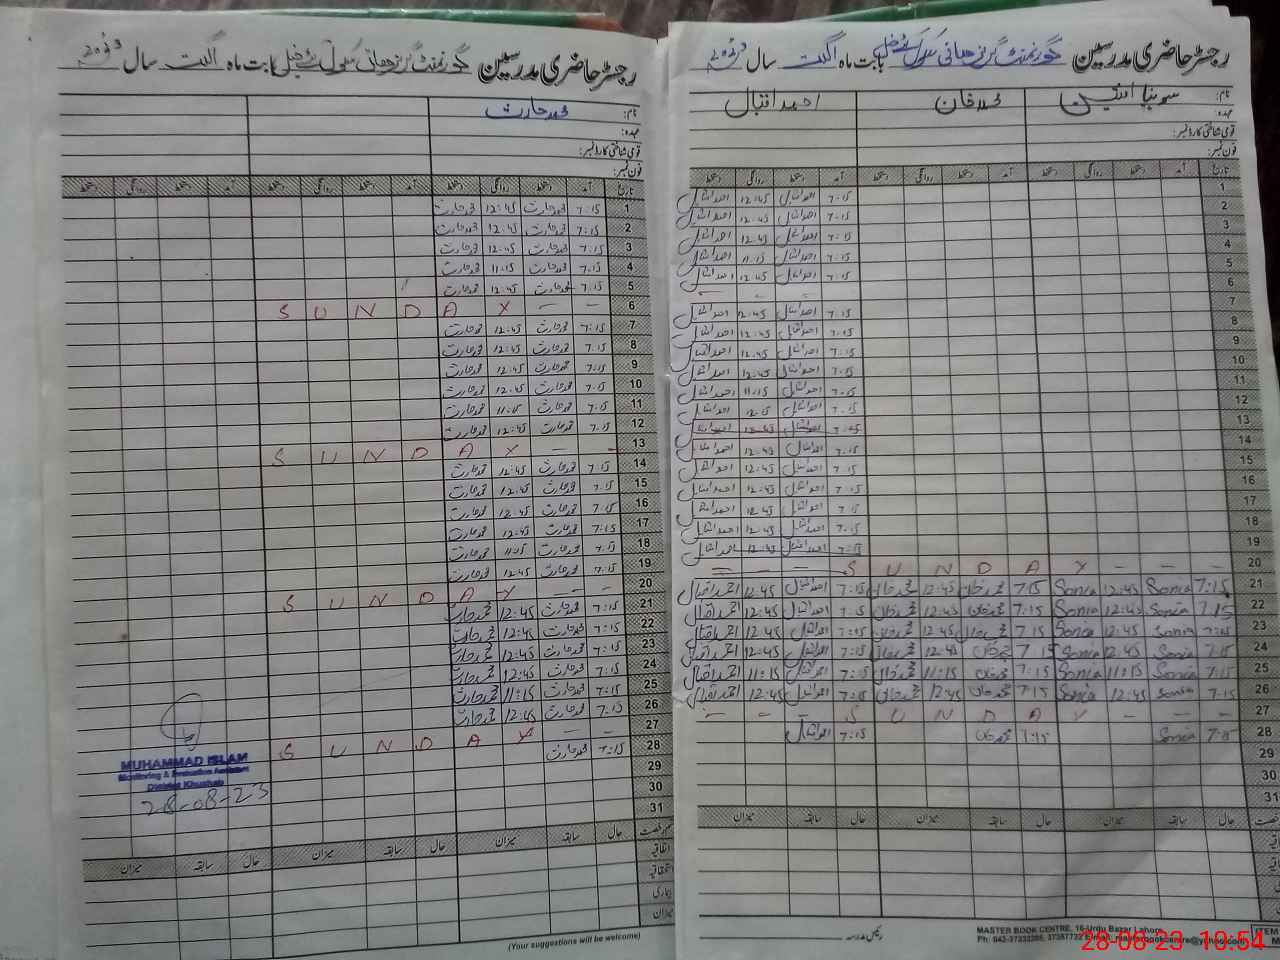 رجسٹر حاضری مدرسین گورنمنٹ گرلز ہائی سکول بابت ماہ اگست سال 2023
نام: سونیا امین محمد خان احمد اقبال
عہدہ:
قومی شناختی کارڈ نمبر:
فون نمبر:
تاریخ آمد دستخط روانگی دستخط آمد دستخط روانگی دستخط آمد دستخط روانگی دستخط
1 7:15 احمد اقبال 12:45 احمد اقبال
2 7:15 احمد اقبال 12:45 احمد اقبال
3 7:15 احمد اقبال 12:45 احمد اقبال
4 7:15 احمد اقبال 11:15 احمد اقبال
5 7:15 احمد اقبال 12:45 احمد اقبال
6
7 7:15 احمد اقبال 12:45 احمد اقبال
8 7:15 احمد اقبال 12:45 احمد اقبال
9 7:15 احمد اقبال 12:45 احمد اقبال
10 7:15 احمد اقبال 12:45 احمد اقبال
11 7:15 احمد اقبال 11:15 احمد اقبال
12 7:15 احمد اقبال احمد اقبال
13
14 7:15 احمد اقبال 12:45 احمد اقبال
15 7:15 احمد اقبال 12:45 احمد اقبال
16 7:15 احمد اقبال 12:45 احمد اقبال
17 7:15 احمد اقبال 12:45 احمد اقبال
18 7:15 احمد اقبال احمد اقبال
19 7:15 احمد اقبال 12:45 احمد اقبال
20 S U N D A Y
21 7:15 Sonia 12:45 Sonia 7:15 محمد خان 12:45 محمد خان 7:15 احمد اقبال 12:45 احمد اقبال
22 7:15 Sonia 12:45 Sonia 7:15 محمد خان 12:45 محمد خان 7:15 احمد اقبال 12:45 احمد اقبال
23 7:15 Sonia 12:45 Sonia 7:15 محمد خان 12:45 محمد خان 7:15 احمد اقبال 12:45 احمد اقبال
24 7:15 Sonia 12:45 Sonia 7:15 محمد خان 12:45 محمد خان 7:15 احمد اقبال 12:45 احمد اقبال
25 7:15 Sonia 11:15 Sonia 7:15 محمد خان 11:15 محمد خان 7:15 احمد اقبال 11:15 احمد اقبال
26 7:15 Sonia 12:45 Sonia 7:15 محمد خان 12:45 محمد خان 7:15 احمد اقبال 12:45 احمد اقبال
27 S U N D A Y
28 7:15 Sonia 7:15 محمد خان 7:15 احمد اقبال
29
30
31
حال سابقہ میزان حال سابقہ میزان حال سابقہ میزان
رئیس مدرسہ
MASTER BOOK CENTRE, 16-Urdu Bazar Lahore
28-08-23 10:54
رجسٹر حاضری مدرسین گورنمنٹ گرلز ہائی سکول بابت ماہ اگست سال 2023
نام: محمد حارث
عہدہ:
قومی شناختی کارڈ نمبر:
فون نمبر:
تاریخ آمد دستخط روانگی دستخط آمد دستخط روانگی دستخط آمد دستخط روانگی دستخط
1 7:15 محمد حارث 12:45 محمد حارث
2 7:15 محمد حارث 12:45 محمد حارث
3 7:15 محمد حارث 12:45 محمد حارث
4 7:15 محمد حارث 11:15 محمد حارث
5 7:15 محمد حارث 12:45 محمد حارث
6 S U N D A Y
7 7:15 محمد حارث 12:45 محمد حارث
8 7:15 محمد حارث 12:45 محمد حارث
9 7:15 محمد حارث 12:45 محمد حارث
10 7:15 محمد حارث 12:45 محمد حارث
11 7:15 محمد حارث 11:15 محمد حارث
12 7:15 محمد حارث 12:45 محمد حارث
13 S U N D A Y
14 7:15 محمد حارث 12:45 محمد حارث
15 7:15 محمد حارث 12:45 محمد حارث
16 7:15 محمد حارث 12:45 محمد حارث
17 7:15 محمد حارث 12:45 محمد حارث
18 7:15 محمد حارث 11:15 محمد حارث
19 7:15 محمد حارث 12:45 محمد حارث
20 S U N D A Y
21 7:15 محمد حارث 12:45 محمد حارث
22 7:15 محمد حارث 12:45 محمد حارث
23 7:15 محمد حارث 12:45 محمد حارث
24 7:15 محمد حارث 12:45 محمد حارث
25 7:15 محمد حارث 11:15 محمد حارث
26 7:15 محمد حارث 12:45 محمد حارث
27 S U N D A Y
28 7:15 محمد حارث
29
30
31
حال سابقہ میزان حال سابقہ میزان حال سابقہ میزان
اتفاقیہ
استحقاقیہ
بیماری
میزان
MUHAMMAD ISLAM
Monitoring & Evaluation Assistant
District Khushab
28-08-23
(Your suggestions will be welcome)